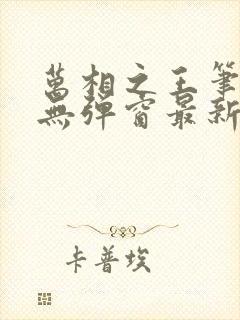 萬相之王筆
無彈窗最新
卡普埃